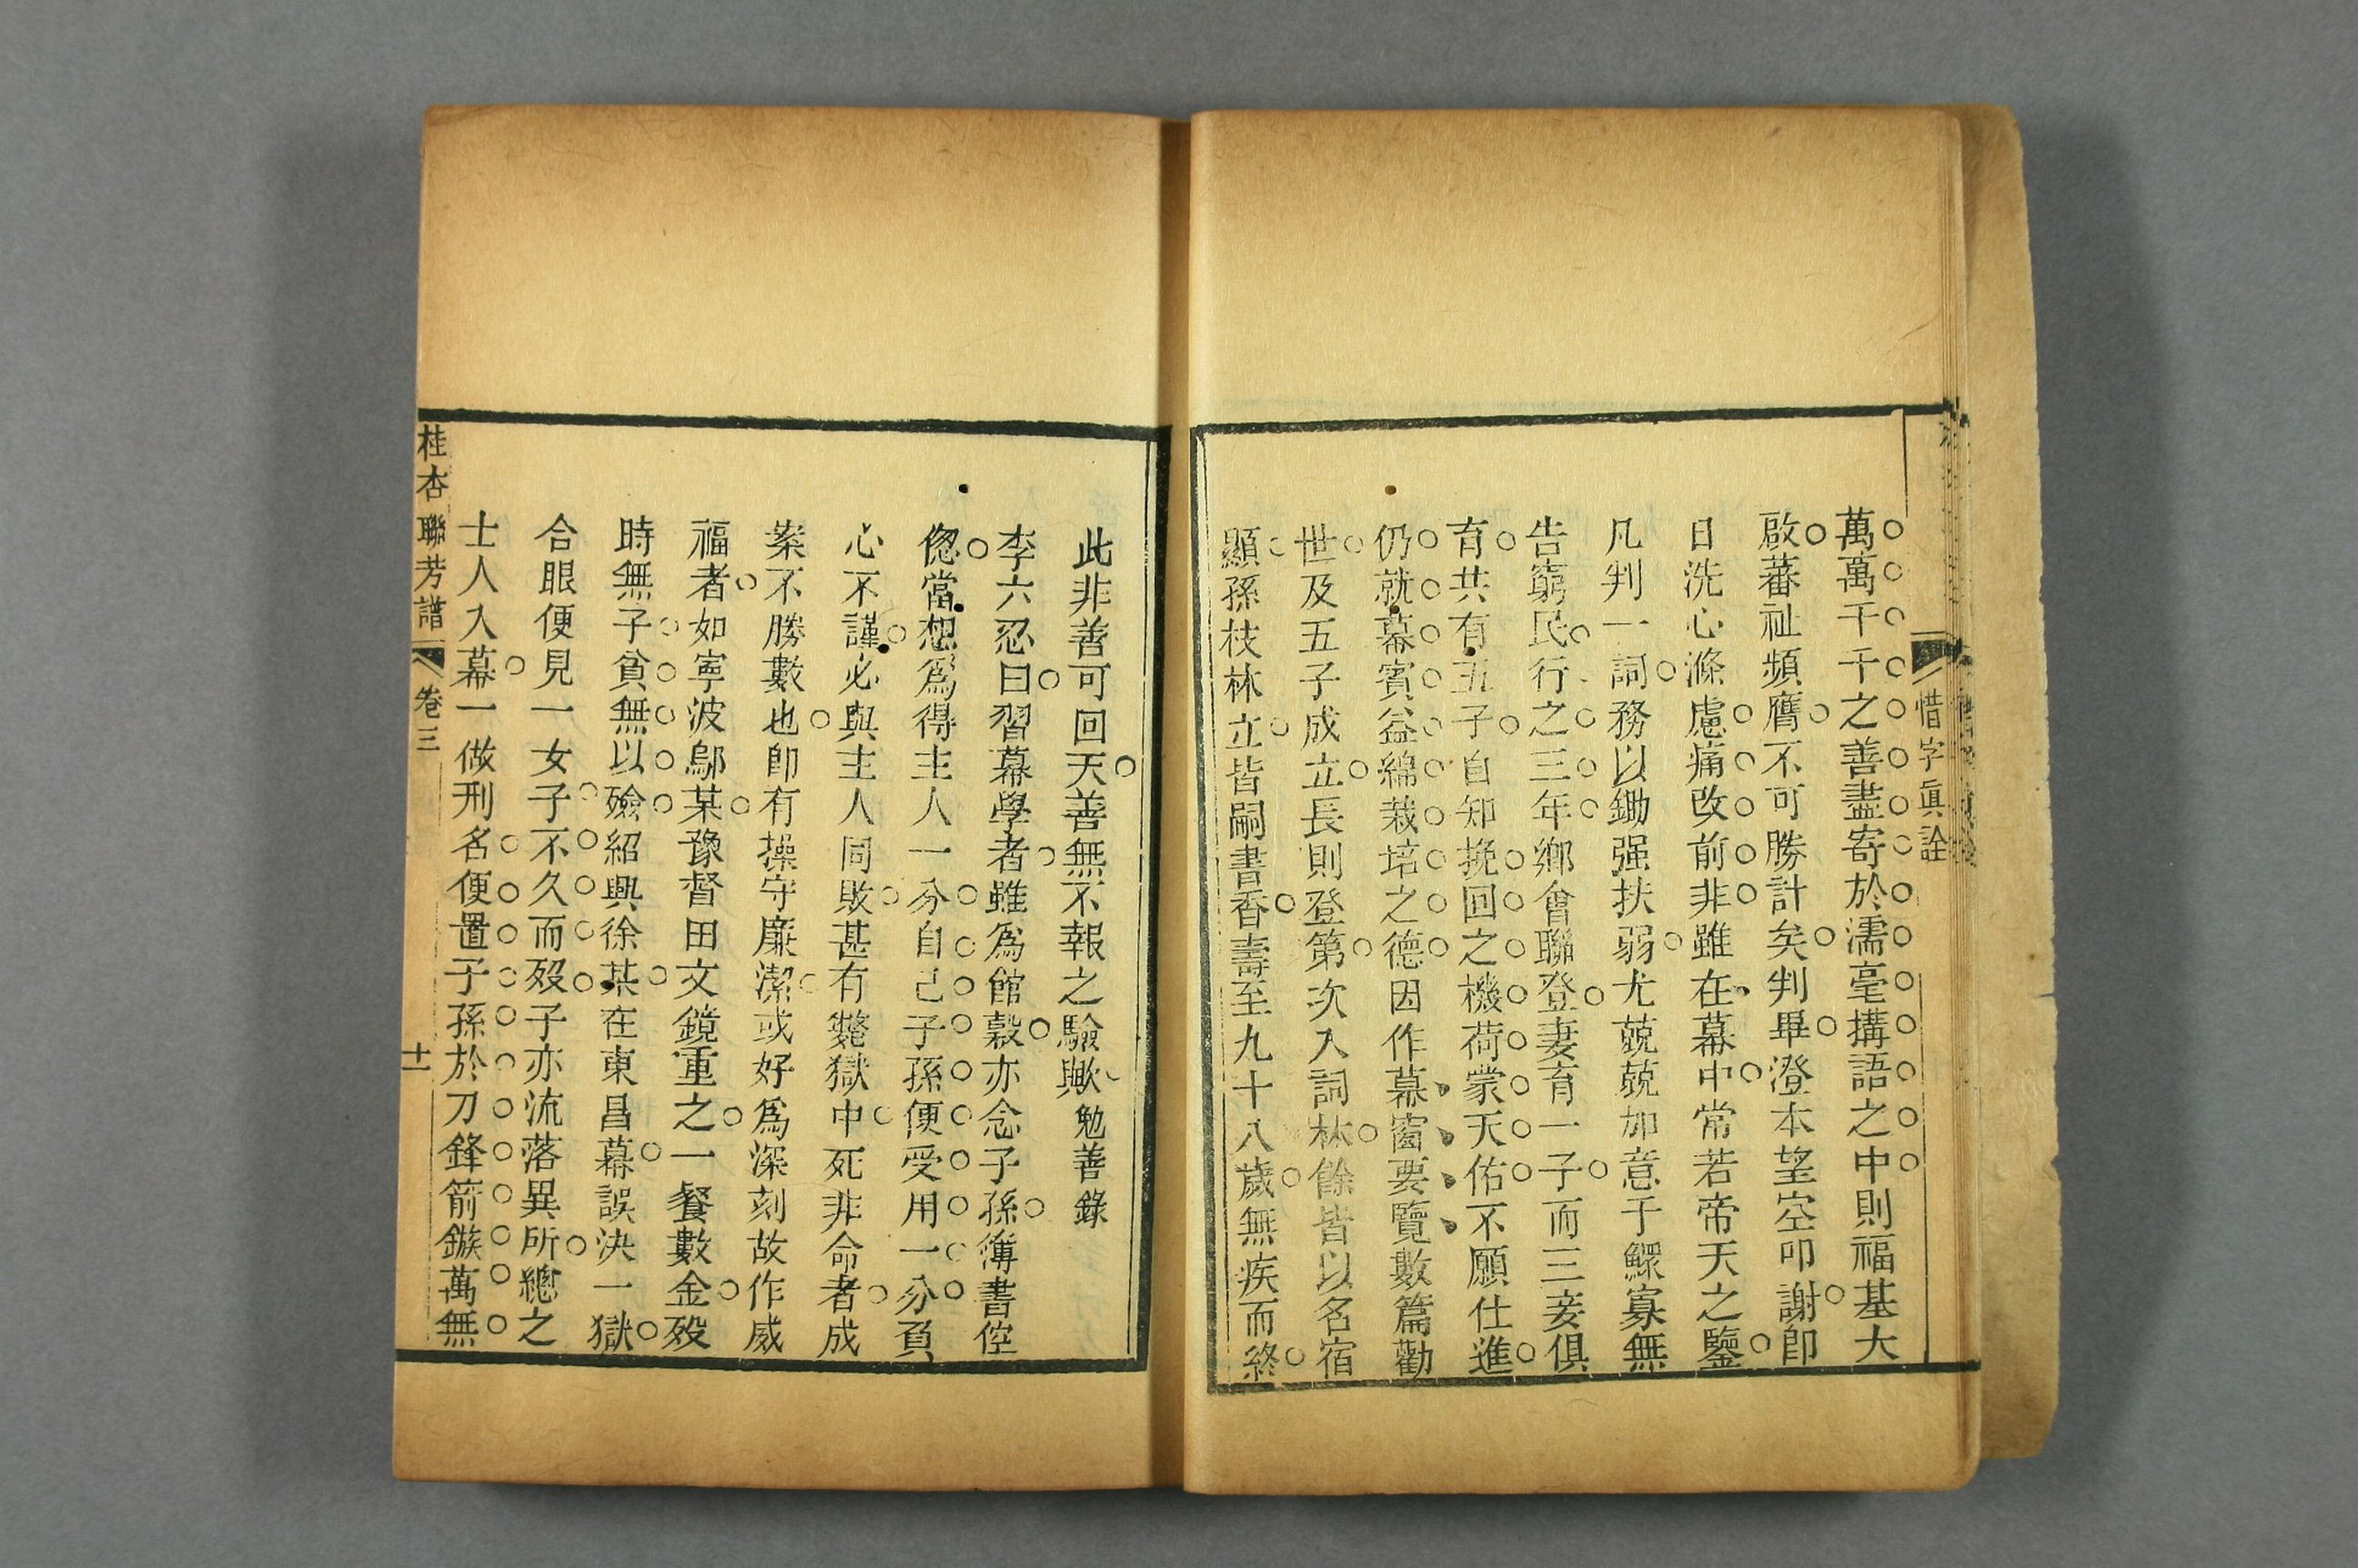 惜字眞詮
萬萬千千之善盡寄於濡毫搆語之中則福基大
啟蕃祉頻膺不可勝計矣判畢澄本望空叩謝卽
日洗心滌慮痛改前非雖在幕中常若帝天之鑒
凡判一詞務以鋤强扶弱尤兢兢加意于鰥寡無
告窮民行之三年鄉會聯登妻育一子而三妾俱
育共有五子自知挽回之機荷蒙天佑不願仕進
仍就幕賓益綿栽培之德因作幕窗要覽數篇勸
世及五子成立長則登第次入詞林餘皆以名宿
顯孫枝林立皆嗣書香壽至九十八歲無疾而終
此非善可回天善無不報之驗歟勉善錄
李六忍曰習幕學者雖爲館穀亦念子孫簿書倥
偬當想爲得主人一分自己子孫便受用一分負
心不謹必與主人同敗甚有斃獄中死非命者成
案不勝數也卽有操守廉潔或好爲深刻故作威
福者如寧波鄔某豫督田文鏡重之一餐數金歿
時無子貧無以殮紹興徐某在東昌幕誤決一獄
合眼便見一女子不久而歿子亦流落異所總之
士人入幕一做刑名便置子孫於刀鋒箭鏃萬無
桂杏聯芳譜 卷三 十一